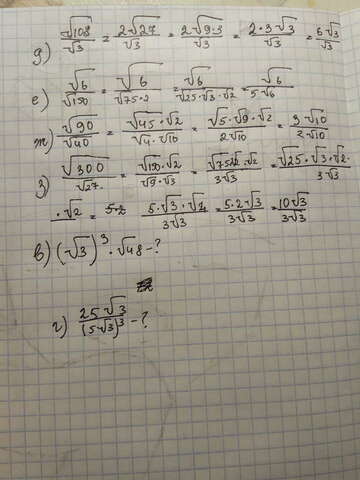 д) √108/√3 = 2√27/√3 = 2√9·3/√3 = 2·3√3/√3 = 6√3/√3
е) √6/√150 = √6/√75·2 = √6/√25·√3·√2 = √6/5√6
ж) √90/√40 = √45·√2/√4·√10 = √5·√9·√2/2√10 = 3√10/2√10
з) √300/√27 = √150·√2/√9·√3 = √75·√2·√2/3√3 = √25·√3·√2/3√3
·√2 = 5·2 5·√3·√2/3√3 = 5·2√3/3√3 = 10√3/3√3
в) (√3)³·√48 - ?
г) 25√3/(5√3)³ - ?